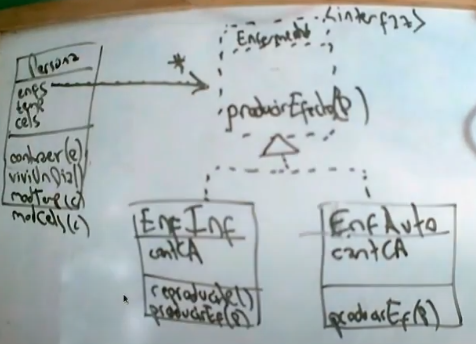 Persona
enfs
temp
cels
contraer(e)
vivirUnDia()
modTemp(c)
modCels(c)
*
<interfaz>
Enfermedad
producirEfecto(p)
EnfInf
cantCA
reproducirse()
producirEf(P)
EnfAuto
cantCA
producirEf(P)